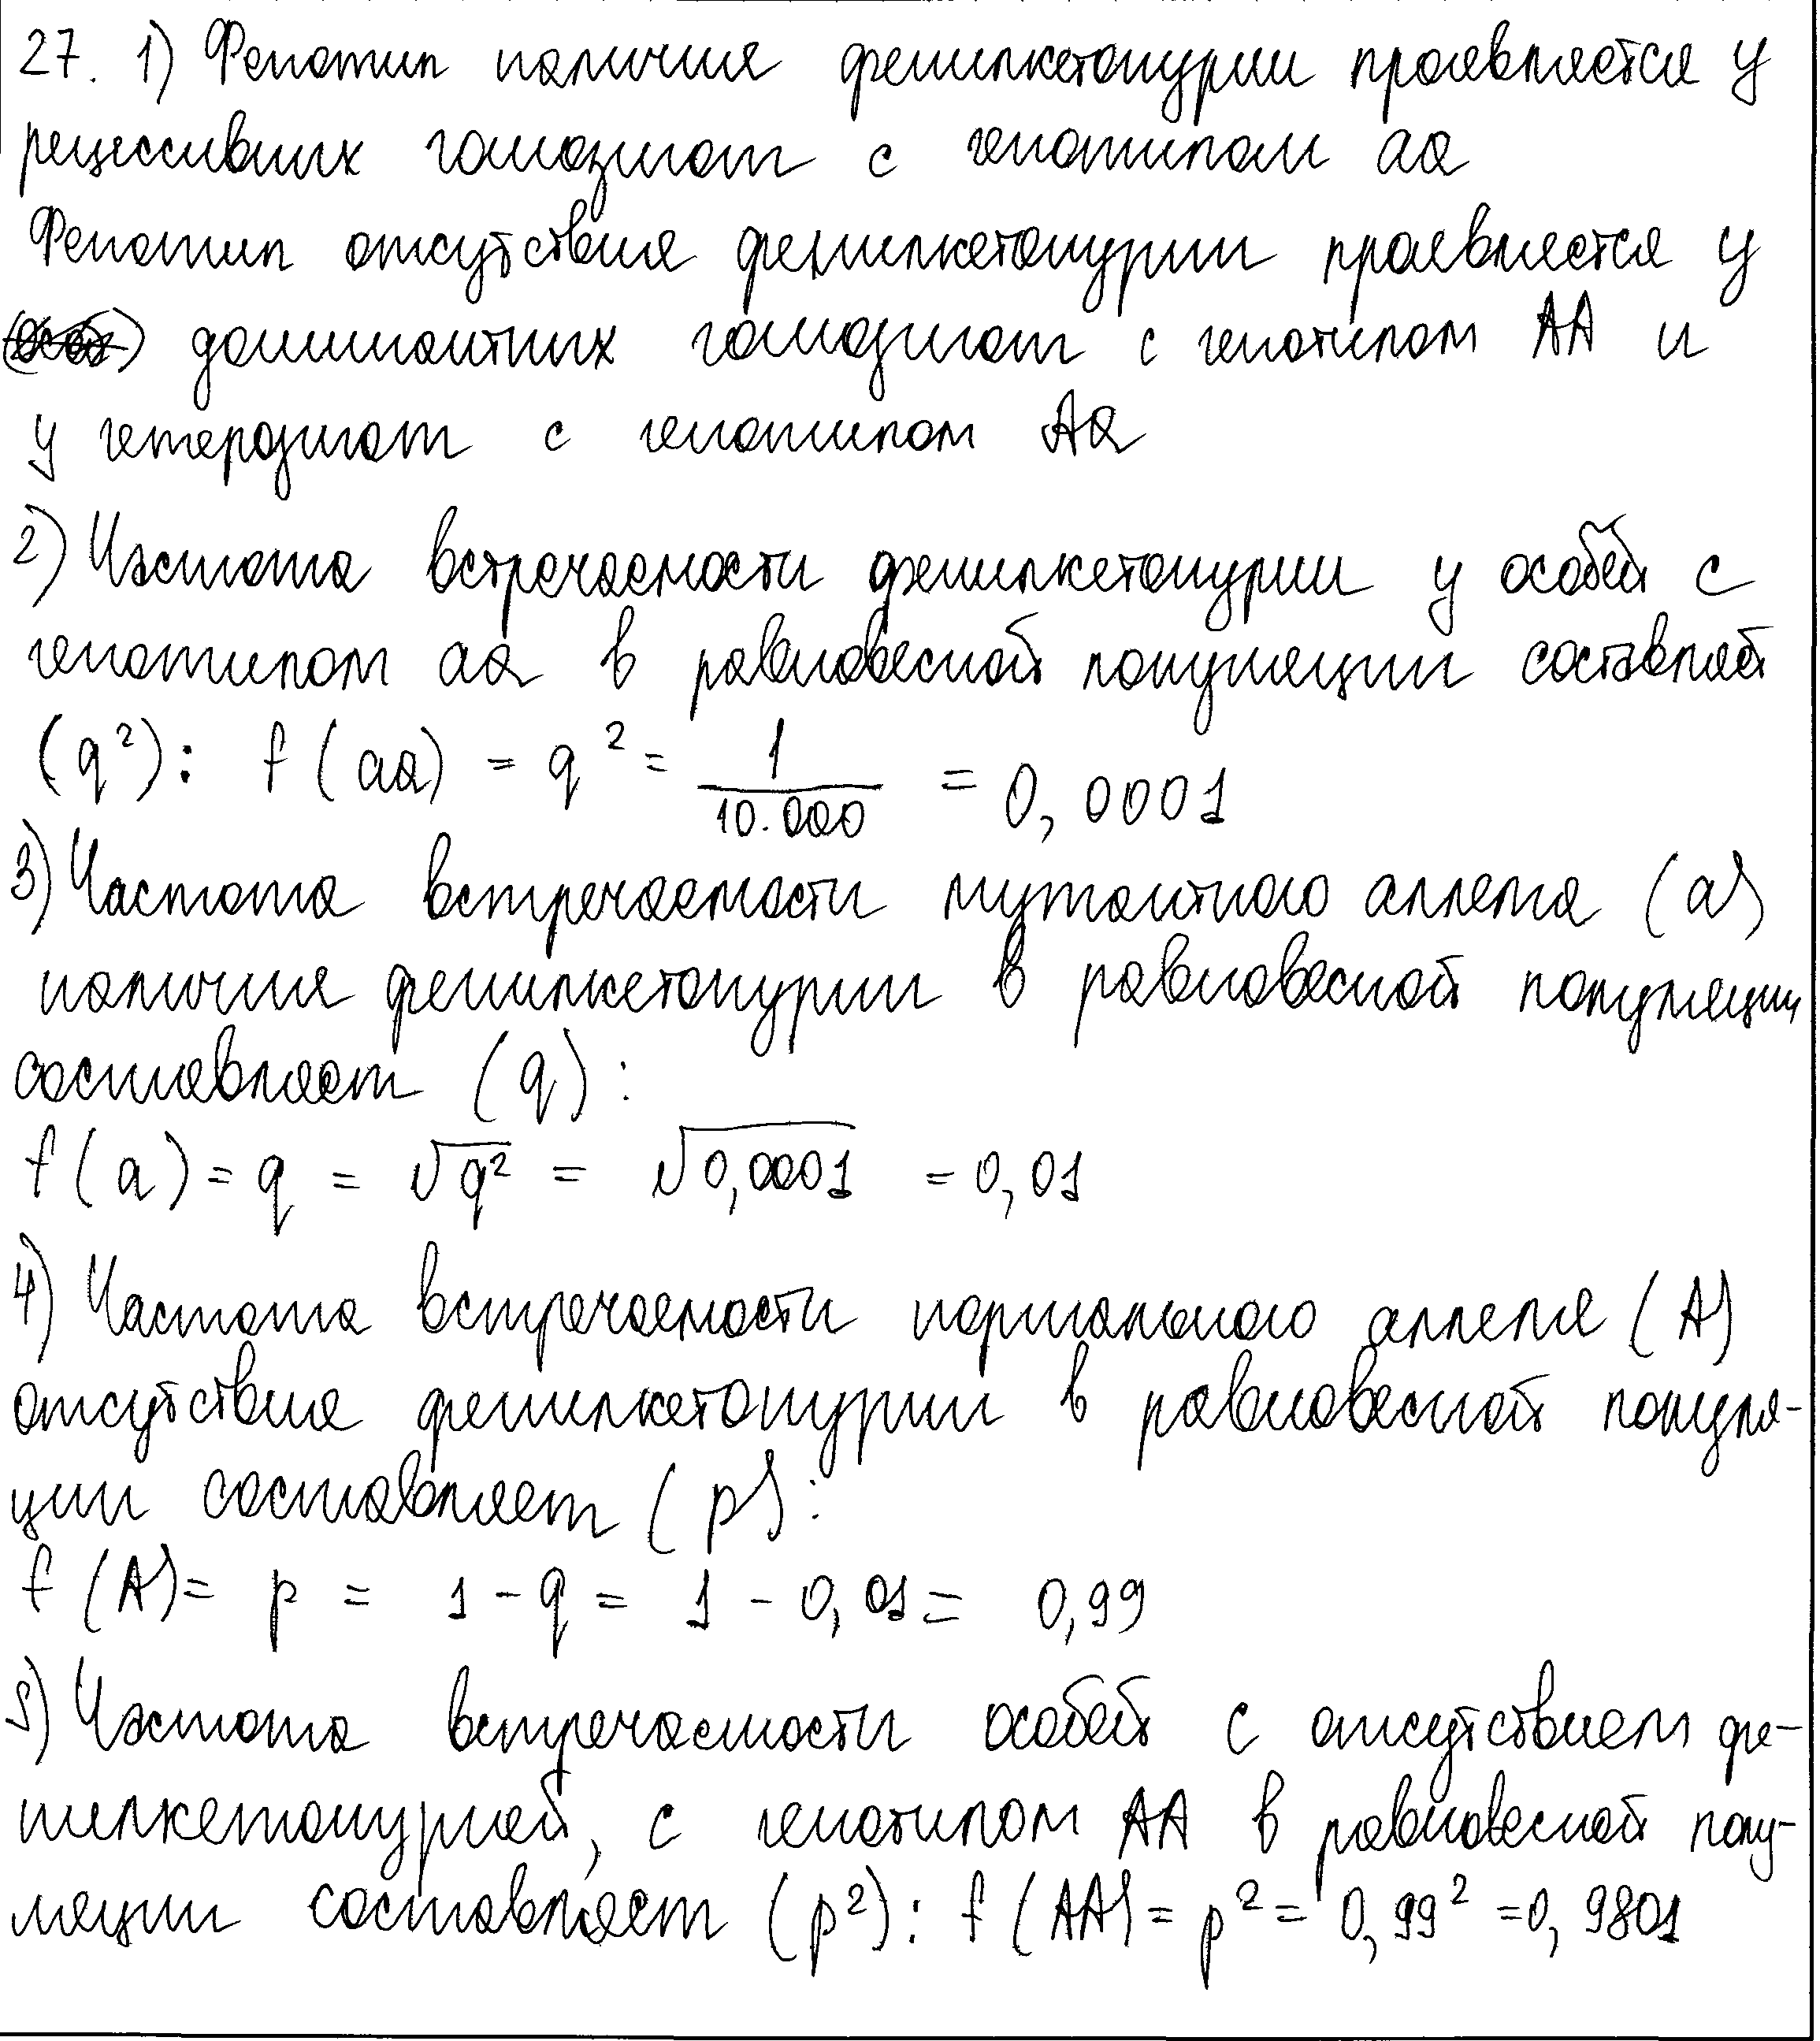 27. 1) Фенотип наличия фенилкетонурии проявляется у
рецессивных гомозигот с генотипом aa
Фенотип отсутствия фенилкетонурии проявляется у
доминантных гомозигот с генотипом AA и
у гетерозигот с генотипом Aa
2) Частота встречаемости фенилкетонурии у особей с
генотипом aa в равновесной популяции составляет
(q²): f(aa) = q² = 1/10.000 = 0,0001
3) Частота встречаемости мутантного аллеля (a)
наличия фенилкетонурии в равновесной популяции
составляет (q):
f(a) = q = √q² = √0,0001 = 0,01
4) Частота встречаемости нормального аллеля (A)
отсутствия фенилкетонурии в равновесной популя-
ции составляет (p):
f(A) = p = 1 - q = 1 - 0,01 = 0,99
5) Частота встречаемости особей с отсутствием фе-
нилкетонурией, с генотипом AA в равновесной попу-
ляции составляет (p²): f(AA) = p² = 0,99² = 0,9801